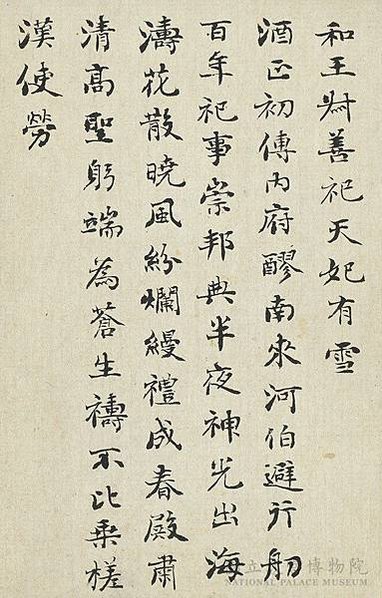 和王叔善祀天妃有雪
酒正初傳內府醪南來河伯避行舠
百年祀事崇邦典半夜神光出海
濤花散曉風紛爛縵禮成春殿肅
清高聖躬端為蒼生禱不比乘槎
漢使勞
立 博物院
NATIONAL PALACE MUSEUM